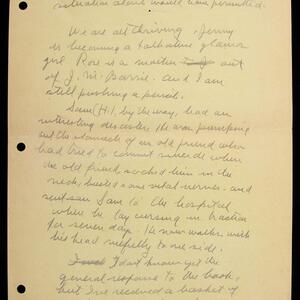 situation alone would have permitted.
We are all thriving. Jenny
is becoming a Tallahia glamor
girl Rose is a matter out
of J. M. Barrie. and I am
still pushing a pencil.
Sam (H), by the way, had an
interesting disaster. He was pumping
out the stomach of an old friend who
had tried to commit suicide when
the old friend socked him in the
neck, busted some vital nerves and
sent Sam to the hospital
where he lay cursing in traction
for seven days. He now walks with
his head ruefully to one side.
I don't know yet the
general response to the book,
but I've received a basket of